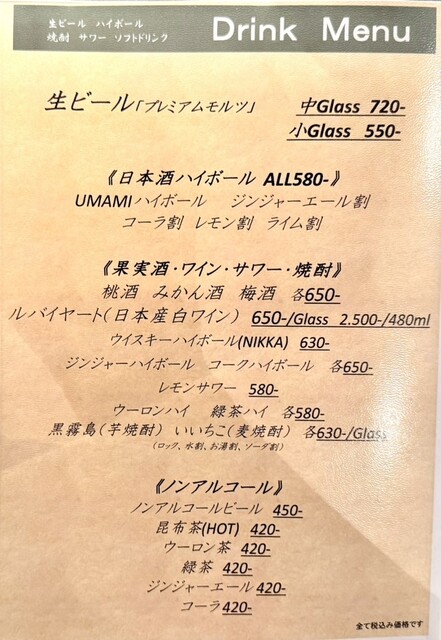 生ビール ハイボール
焼酎 サワー ソフトドリンク
Drink Menu
生ビール「プレミアムモルツ」 中Glass 720-
小Glass 550-
《日本酒ハイボール ALL580-》
UMAMIハイボール ジンジャーエール割
コーラ割 レモン割 ライム割
《果実酒・ワイン・サワー・焼酎》
桃酒 みかん酒 梅酒 各650-
ルバイヤート(日本産白ワイン) 650-/Glass 2.500-/480ml
ウイスキーハイボール(NIKKA) 630-
ジンジャーハイボール コークハイボール 各650-
レモンサワー 580-
ウーロンハイ 緑茶ハイ 各580-
黒霧島(芋焼酎) いいちこ(麦焼酎) 各630-/Glass
(ロック、水割、お湯割、ソーダ割)
《ノンアルコール》
ノンアルコールビール 450-
昆布茶(HOT) 420-
ウーロン茶 420-
緑茶 420-
ジンジャーエール 420-
コーラ 420-
全て税込み価格です